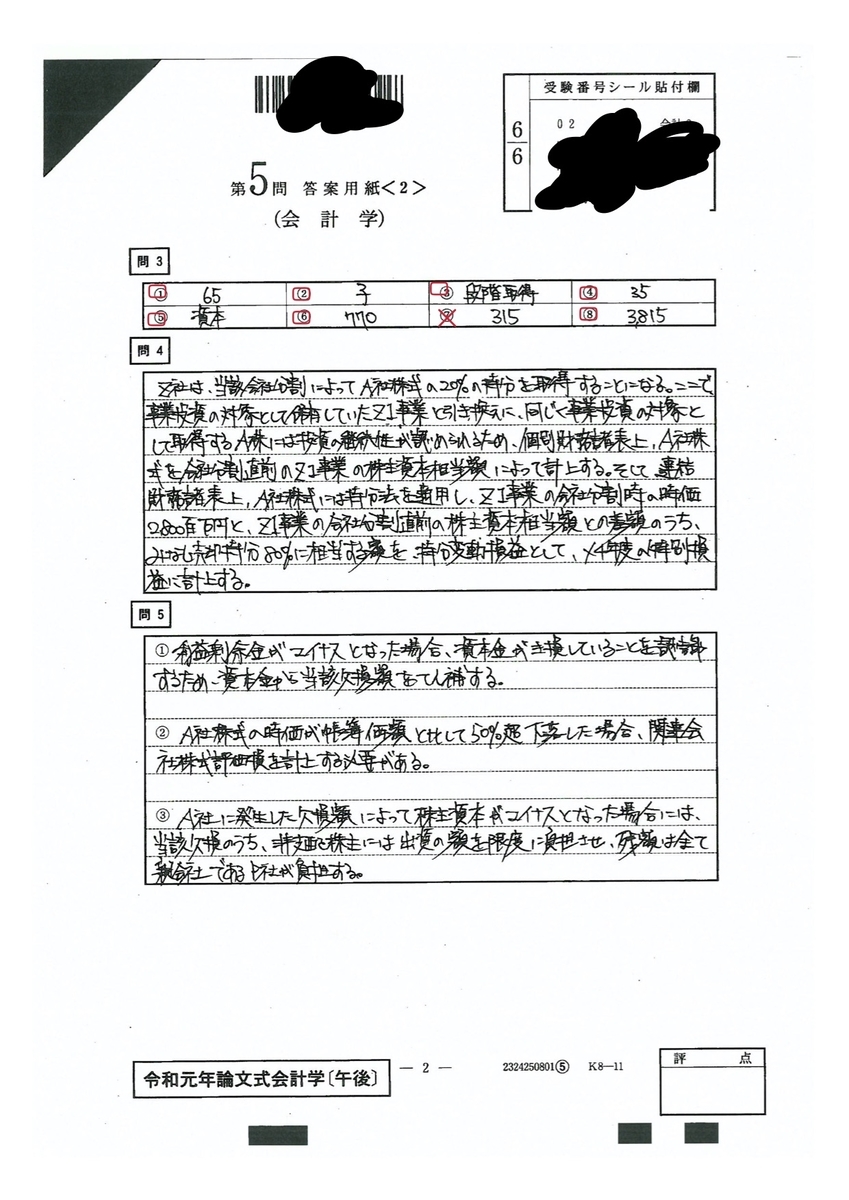 受験番号シール貼付欄
6
6
02
第5問 答案用紙<2>
(会計学)
問 3
① 65 ② 子 ③ 段階取得 ④ 35
⑤ 資本 ⑥ 770 ⑦ 315 ⑧ 3,815
問 4
Z社は、当該会社分割によってA社株式の20%の持分を取得することになる。ここで、
事業投資の対象として保有していたZ1事業と引き換えに、同じく事業投資の対象と
して取得するA株には投資の継続性が認められるため、個別財務諸表上、A社株
式を会社分割直前のZ1事業の株主資本相当額によって計上する。そして、連結
財務諸表上、A社株式には持分法を適用し、Z1事業の会社分割時の時価
2,800百万円と、Z1事業の会社分割直前の株主資本相当額との差額のうち、
みなし売却持分80%に相当する額を、持分変動損益として、X4年度の特別損
益に計上する。
問 5
① 利益剰余金がマイナスとなった場合、資本金がき損していることを認識
するため、資本金から当該欠損額をてん補する。
② A社株式の時価が帳簿価額と比して50%超下落した場合、関連会
社株式評価損を計上する必要がある。
③ A社に発生した欠損額によって株主資本がマイナスとなった場合には、
当該欠損のうち、非支配株主には出資の額を限度に負担させ、残額は全て
親会社であるP社が負担する。
令和元年論文式会計学〔午後〕
— 2 —
2324250801⑤ K8—11
評 点